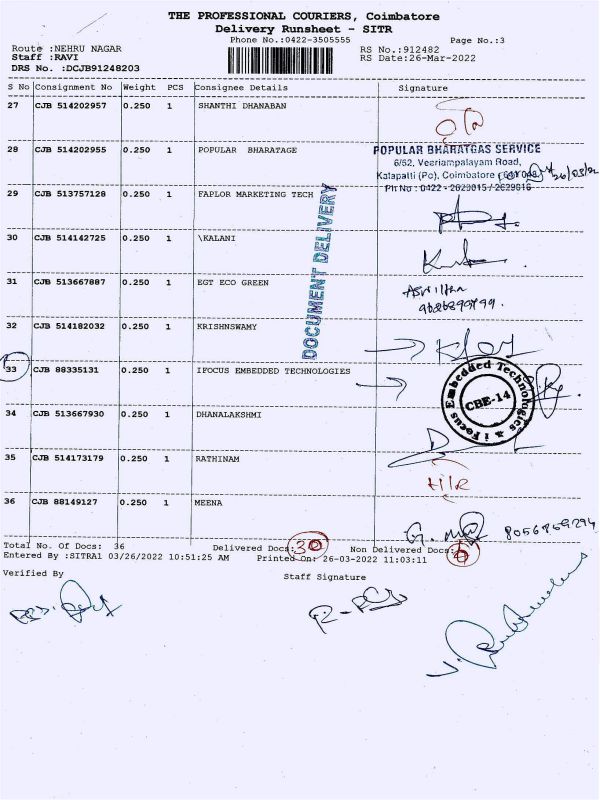 THE PROFESSIONAL COURIERS, Coimbatore
Delivery Runsheet - SITR
Phone No.:0422-3505555
Page No.:3
Route :NEHRU NAGAR
RS No.:912482
Staff :RAVI
RS Date:26-Mar-2022
DRS No. :DCJB91248203
S No Consignment No Weight PCS Consignee Details Signature
27 CJB 514202957 0.250 1 SHANTHI DHANABAN
28 CJB 514202955 0.250 1 POPULAR BHARATAGE
POPULAR BHARATGAS SERVICE
6/52, Veeriampalayam Road,
Kalapatti (Po), Coimbatore
Ph No : 0422 - 2629015 / 2629016
26/03/22
29 CJB 513757128 0.250 1 FAPLOR MARKETING TECH
DOCUMENT DELIVERY
30 CJB 514142725 0.250 1 \KALANI
31 CJB 513667887 0.250 1 EGT ECO GREEN
32 CJB 514182032 0.250 1 KRISHNSWAMY
33 CJB 88335131 0.250 1 IFOCUS EMBEDDED TECHNOLOGIES
i Focus Embedded Technologies
CBE-14
34 CJB 513667930 0.250 1 DHANALAKSHMI
35 CJB 514173179 0.250 1 RATHINAM
36 CJB 88149127 0.250 1 MEENA
8056869294
Total No. Of Docs: 36 Delivered Docs: 30 Non Delivered Docs: 6
Entered By :SITRA1 03/26/2022 10:51:25 AM Printed On: 26-03-2022 11:03:11
Verified By
Staff Signature